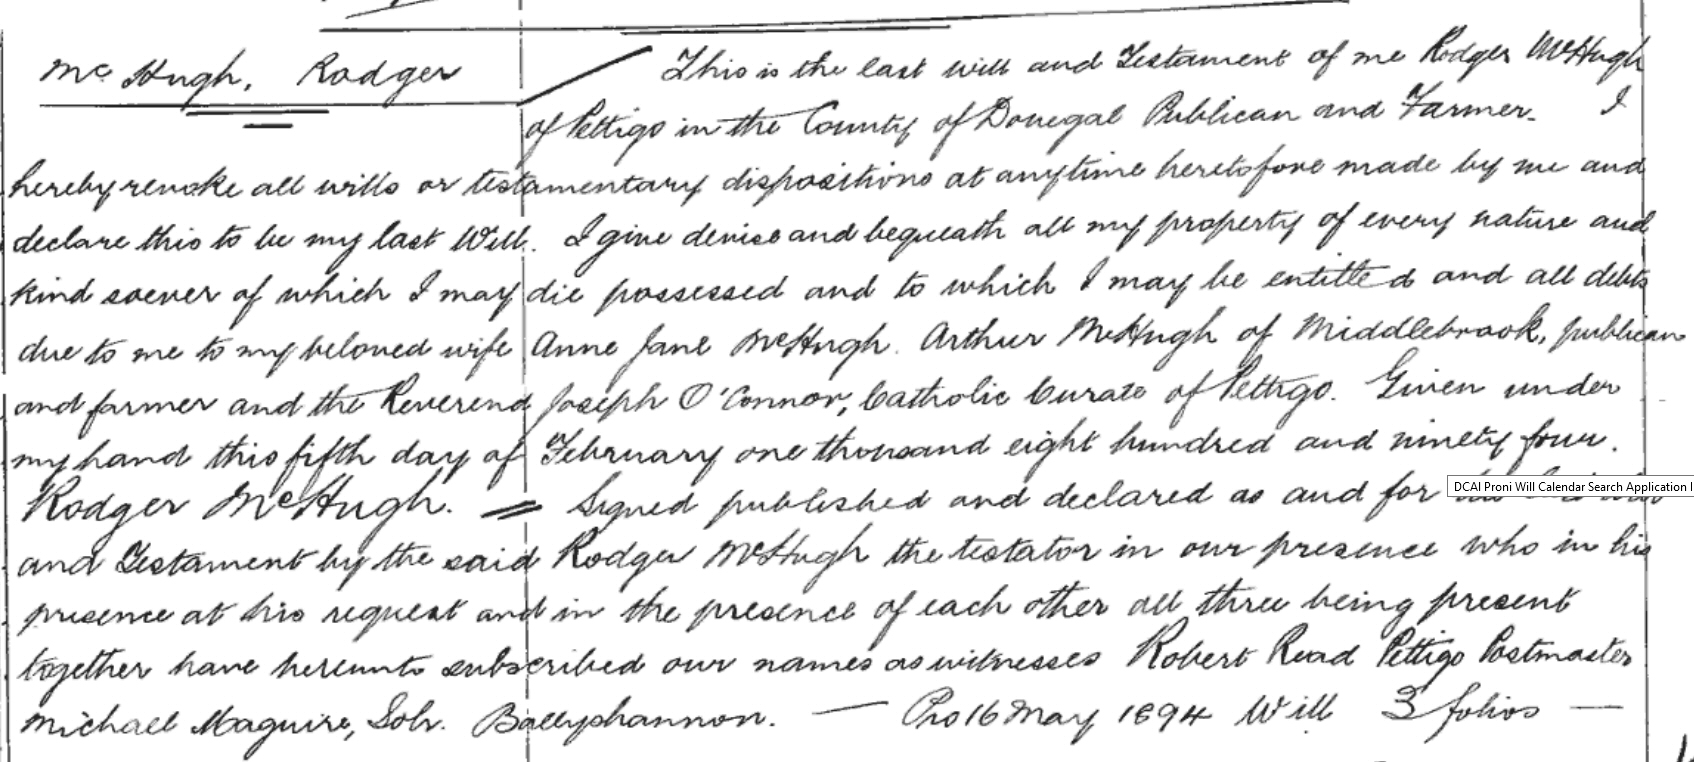 McHugh, Rodger
This is the last will and Testament of me Rodger McHugh
of Pettigo in the County of Donegal Publican and Farmer. I
hereby revoke all wills or testamentary dispositions at anytime heretofore made by me and
declare this to be my last Will. I give devise and bequeath all my property of every nature and
kind soever of which I may die possessed and to which I may be entitled and all debts
due to me to my beloved wife Anne Jane McHugh. Arthur McHugh of Middlebrook, publican
and farmer and the Reverend Joseph O'Connor, Catholic Curate of Pettigo. Given under
my hand this fifth day of February one thousand eight hundred and ninety four.
Rodger McHugh. = Signed published and declared as and for
DCAI Proni Will Calendar Search Application I
and Testament by the said Rodger McHugh the testator in our presence who in his
presence at his request and in the presence of each other all three being present
together have hereunto subscribed our names as witnesses Robert Read Pettigo Postmaster
Michael Maguire, Solr. Ballyshannon. — Pro 16 May 1894 Will 3 folios —